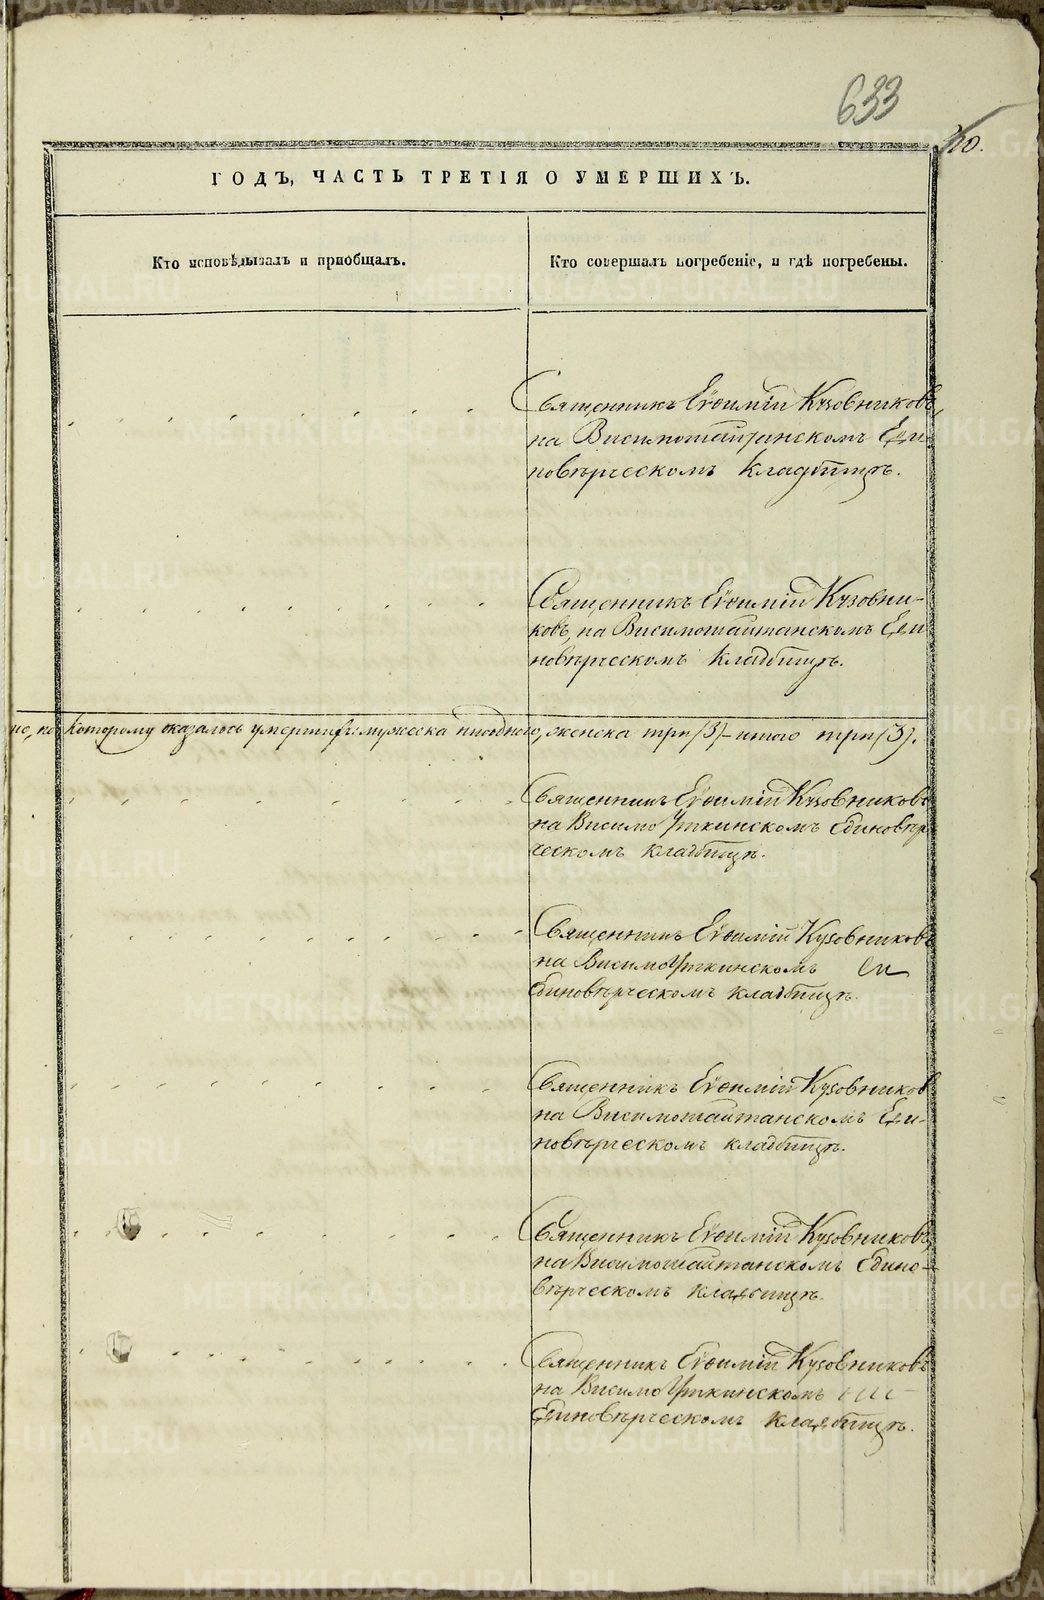 633
ГОДЪ, ЧАСТЬ ТРЕТІЯ О УМЕРШИХЪ.
Кто исповѣдывалъ и пріобщалъ.
Кто совершалъ погребеніе, и гдѣ погребены.
Священникъ Евѳимій Кузовниковъ,
на Висимошайтанскомъ Еди
новѣрческомъ кладбищѣ.
Священникъ Евѳимій Кузовни-
ковъ, на Висимошайтанскомъ Еди
новѣрческомъ кладбищѣ.
по которому оказалось умершихъ: мужеска ниодного, женска три (3) – итого три (3).
Священникъ Евѳимій Кузовниковъ
на ВисимоУткинскомъ единовѣр
ческомъ кладбищѣ.
Священникъ Евѳимій Кузовниковъ
на ВисимоУткинскомъ
единовѣрческомъ кладбищѣ.
Священникъ Евѳимій Кузовниковъ
на Висимошайтанскомъ Еди-
новѣрческомъ кладбищѣ.
Священникъ Евѳимій Кузовниковъ,
на Висимошайтанскомъ едино-
вѣрческомъ кладбищѣ.
Священникъ Евѳимій Кузовниковъ
на ВисимоУткинскомъ
Единовѣрческомъ кладбищѣ.
METRIKI.GASO-URAL.RU